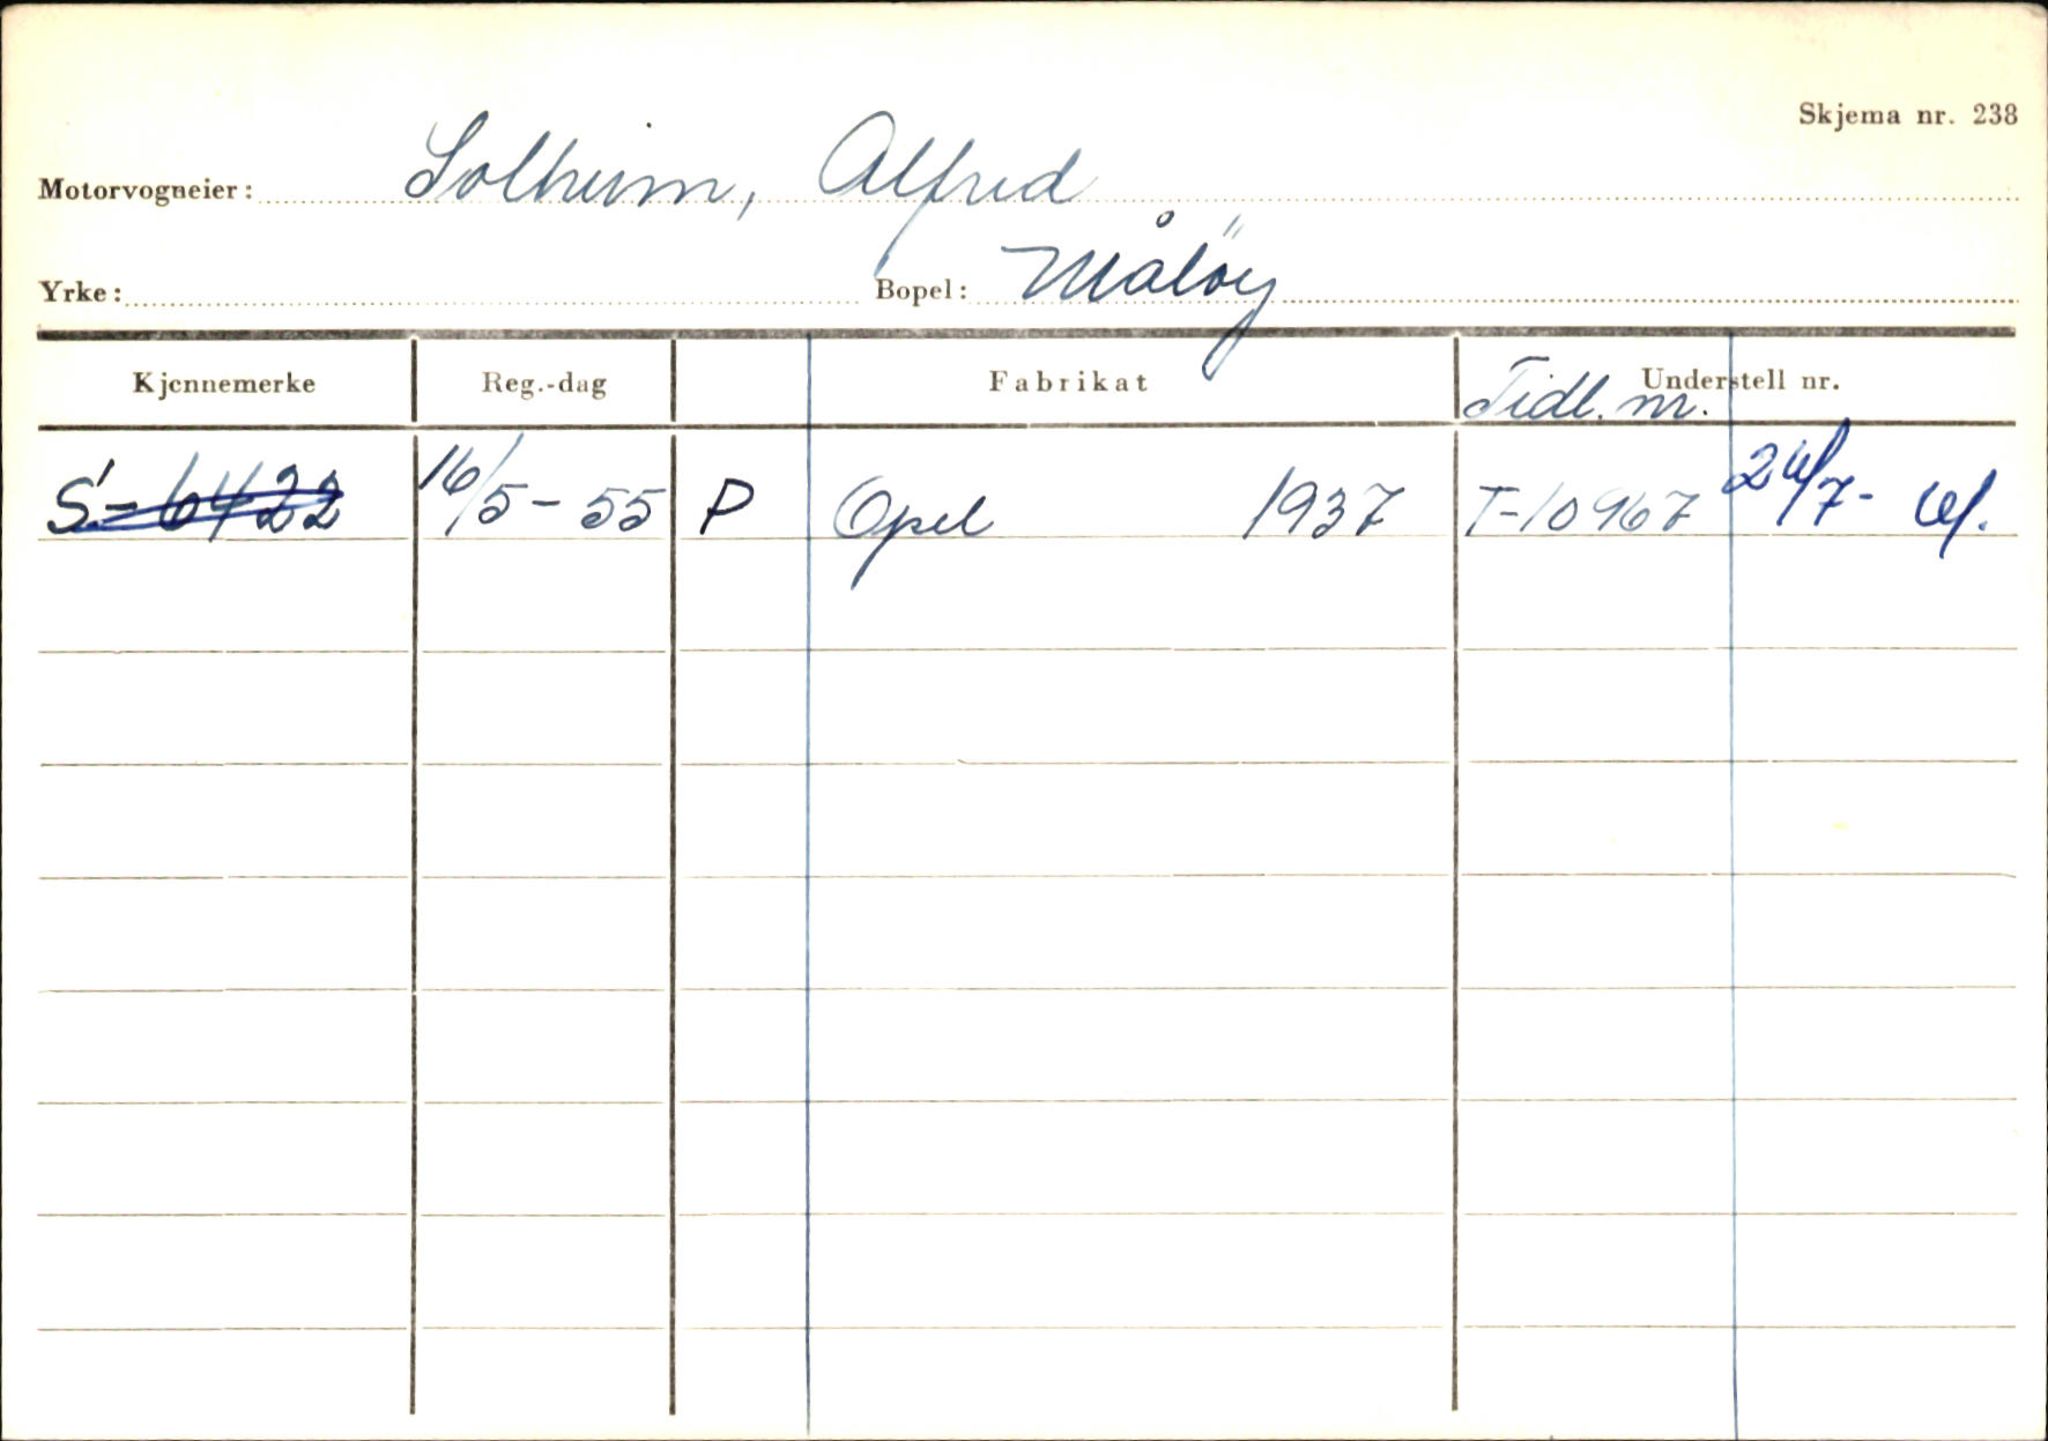 Skjema nr. 238
Motorvogneier: Solheim, Alfred
Yrke: Bopel: Måløy
Kjennemerke Reg.-dag Fabrikat Understell nr.
Tidl. nr.
S-6422 16/5-55 P Opel 1937 T-10967